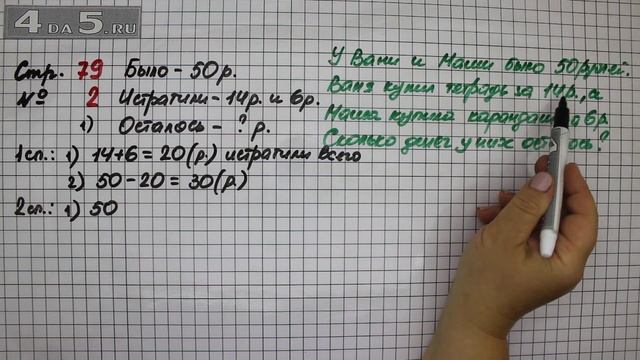 4DA5.RU
Стр. 79 Было - 50р.
№ 2 Истратили - 14р. и 6р.
1) Осталось - ? р.
1сп.: 1) 14+6 = 20(р.) истратили всего
2) 50-20 = 30(р.)
2сп.: 1) 50
У Вани и Маши было 50 рублей.
Ваня купил тетрадь за 14р., а
Маша купила карандаш а 6р.
Сколько денег у них осталось?